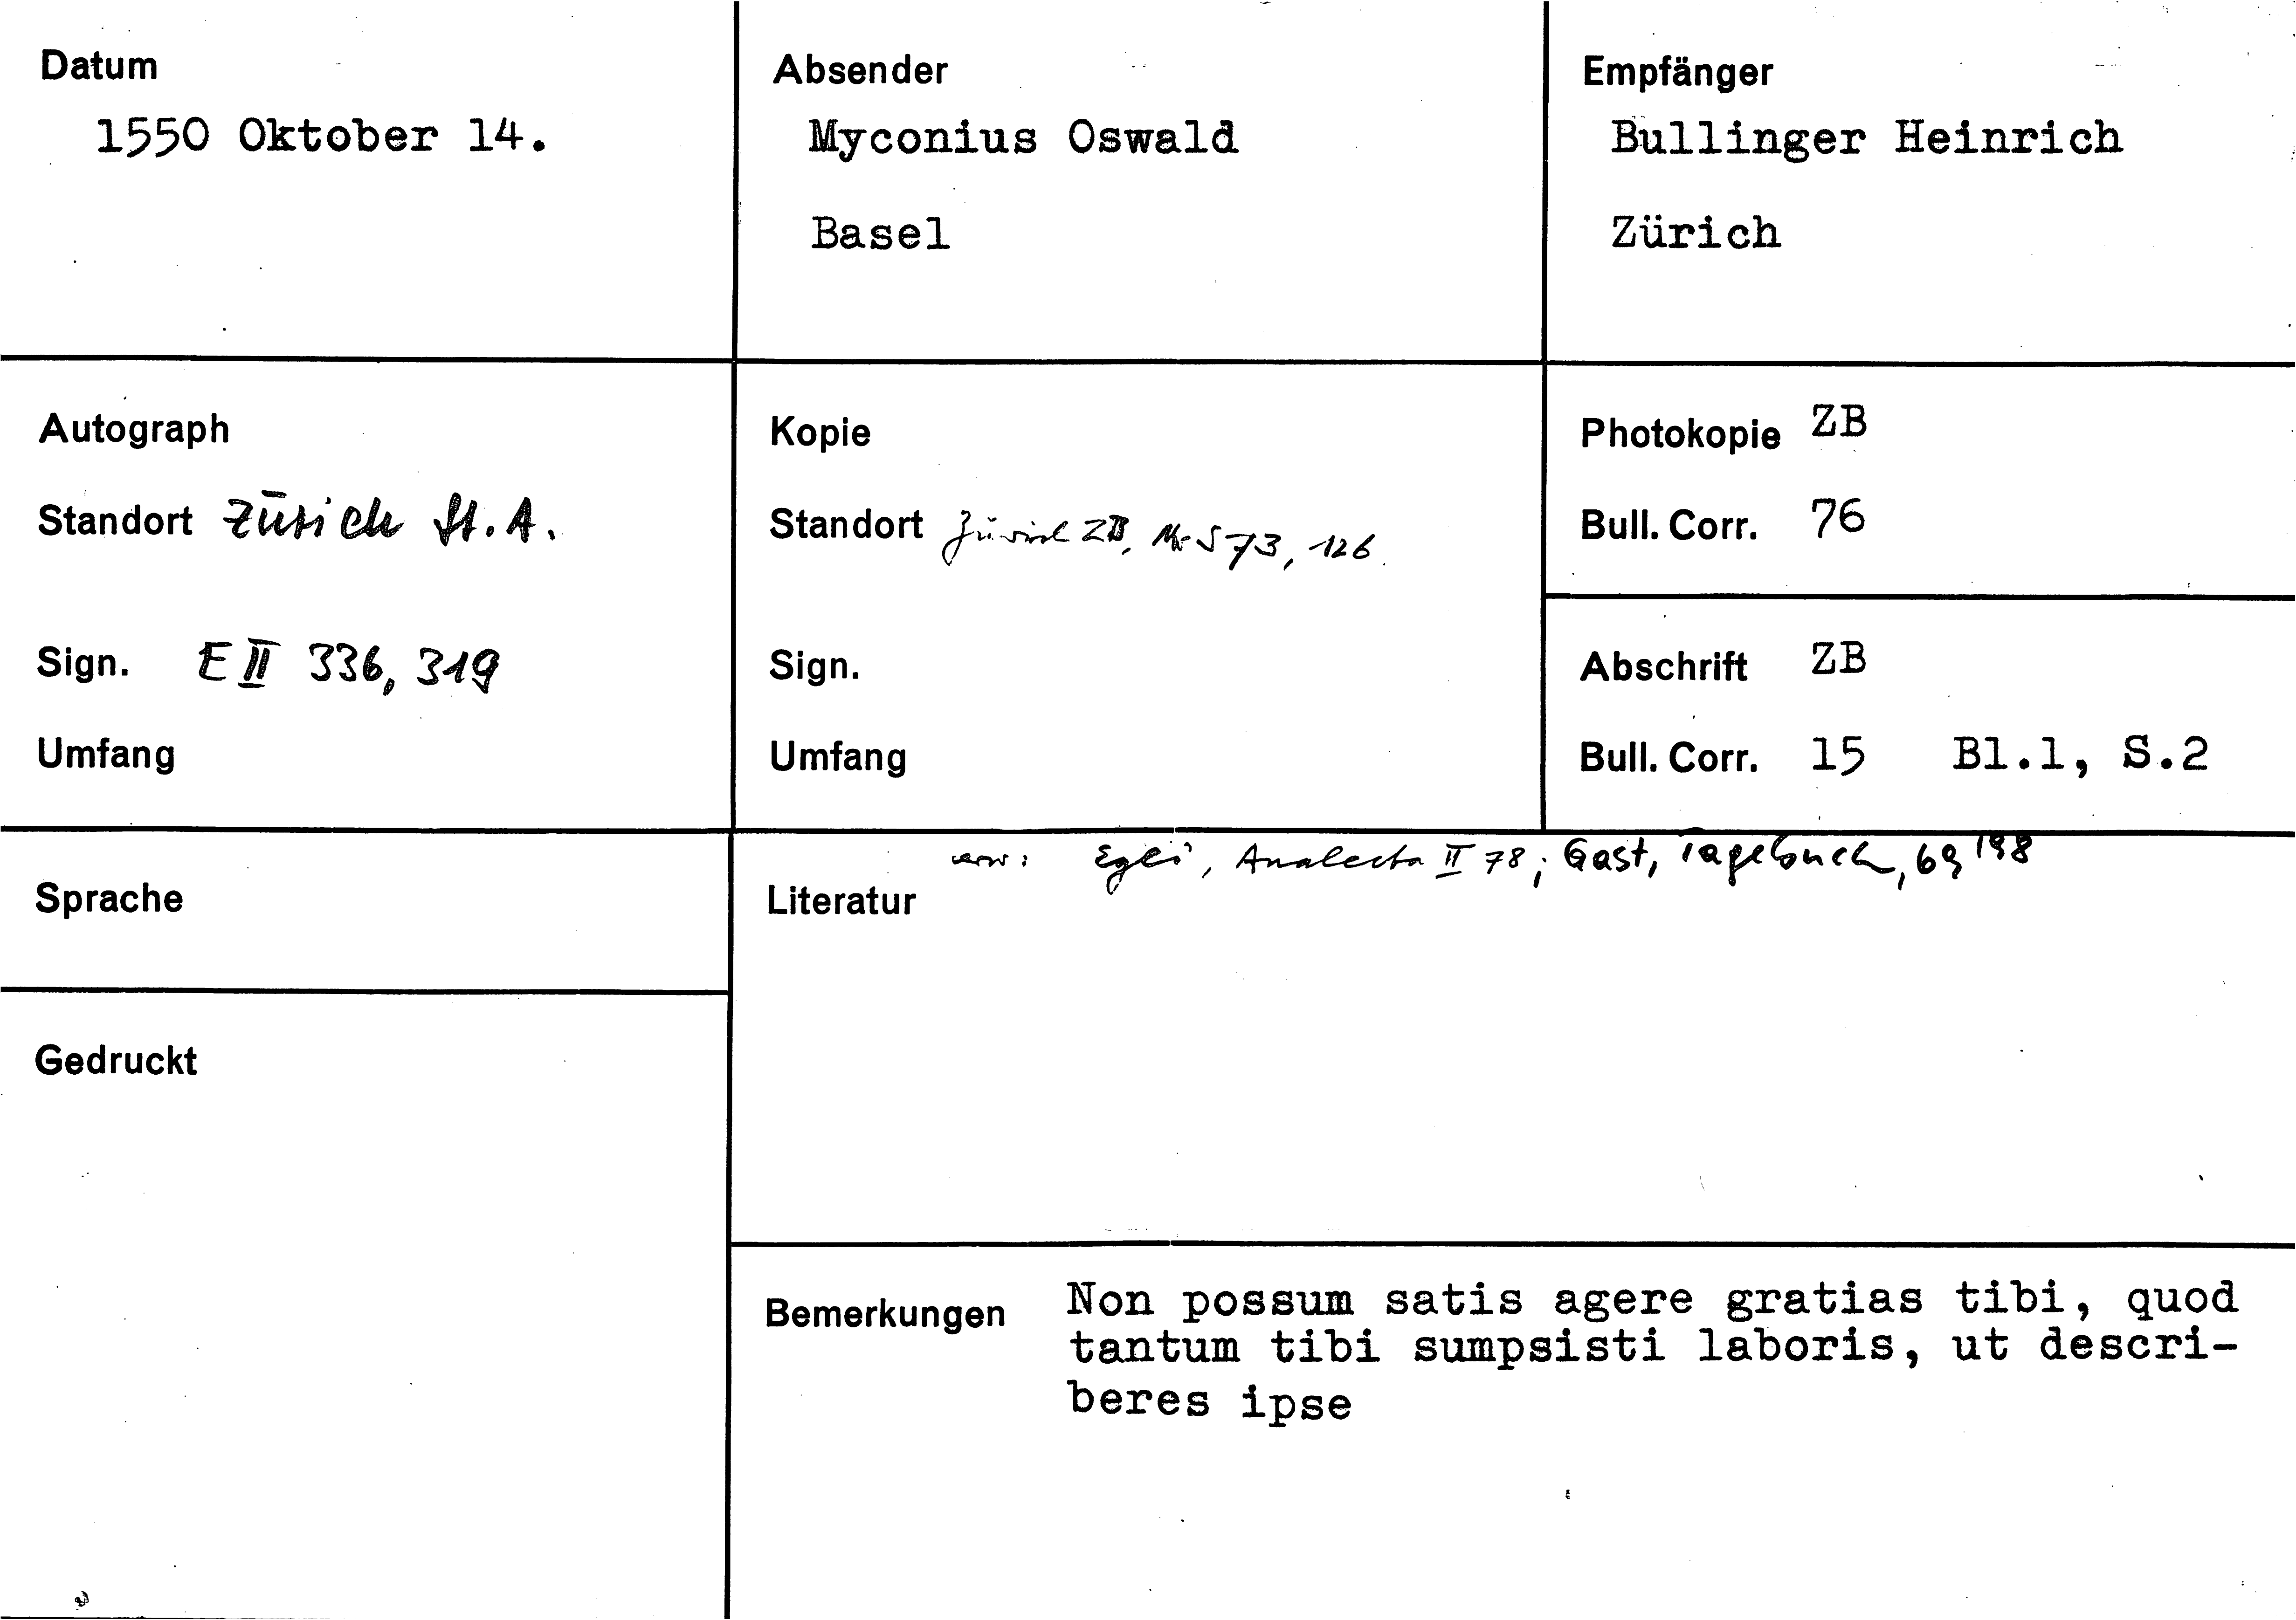 Datum
1550 Oktober 14.
Absender
Myconius Oswald
Basel
Empfänger
Bullinger Heinrich
Zürich
Autograph
Standort Zürich St.A.
Sign. E II 336, 319
Umfang
Kopie
Standort Zürich ZB, Ms S 73, 126.
Sign.
Umfang
Photokopie ZB
Bull. Corr. 76
Abschrift ZB
Bull. Corr. 15 Bl.1, S.2
Sprache
Gedruckt
Egli, Analecta II 78; Gast, Tagebuch, 69 198
Literatur
Bemerkungen Non possum satis agere gratias tibi, quod
tantum tibi sumpsisti laboris, ut descri-
beres ipse